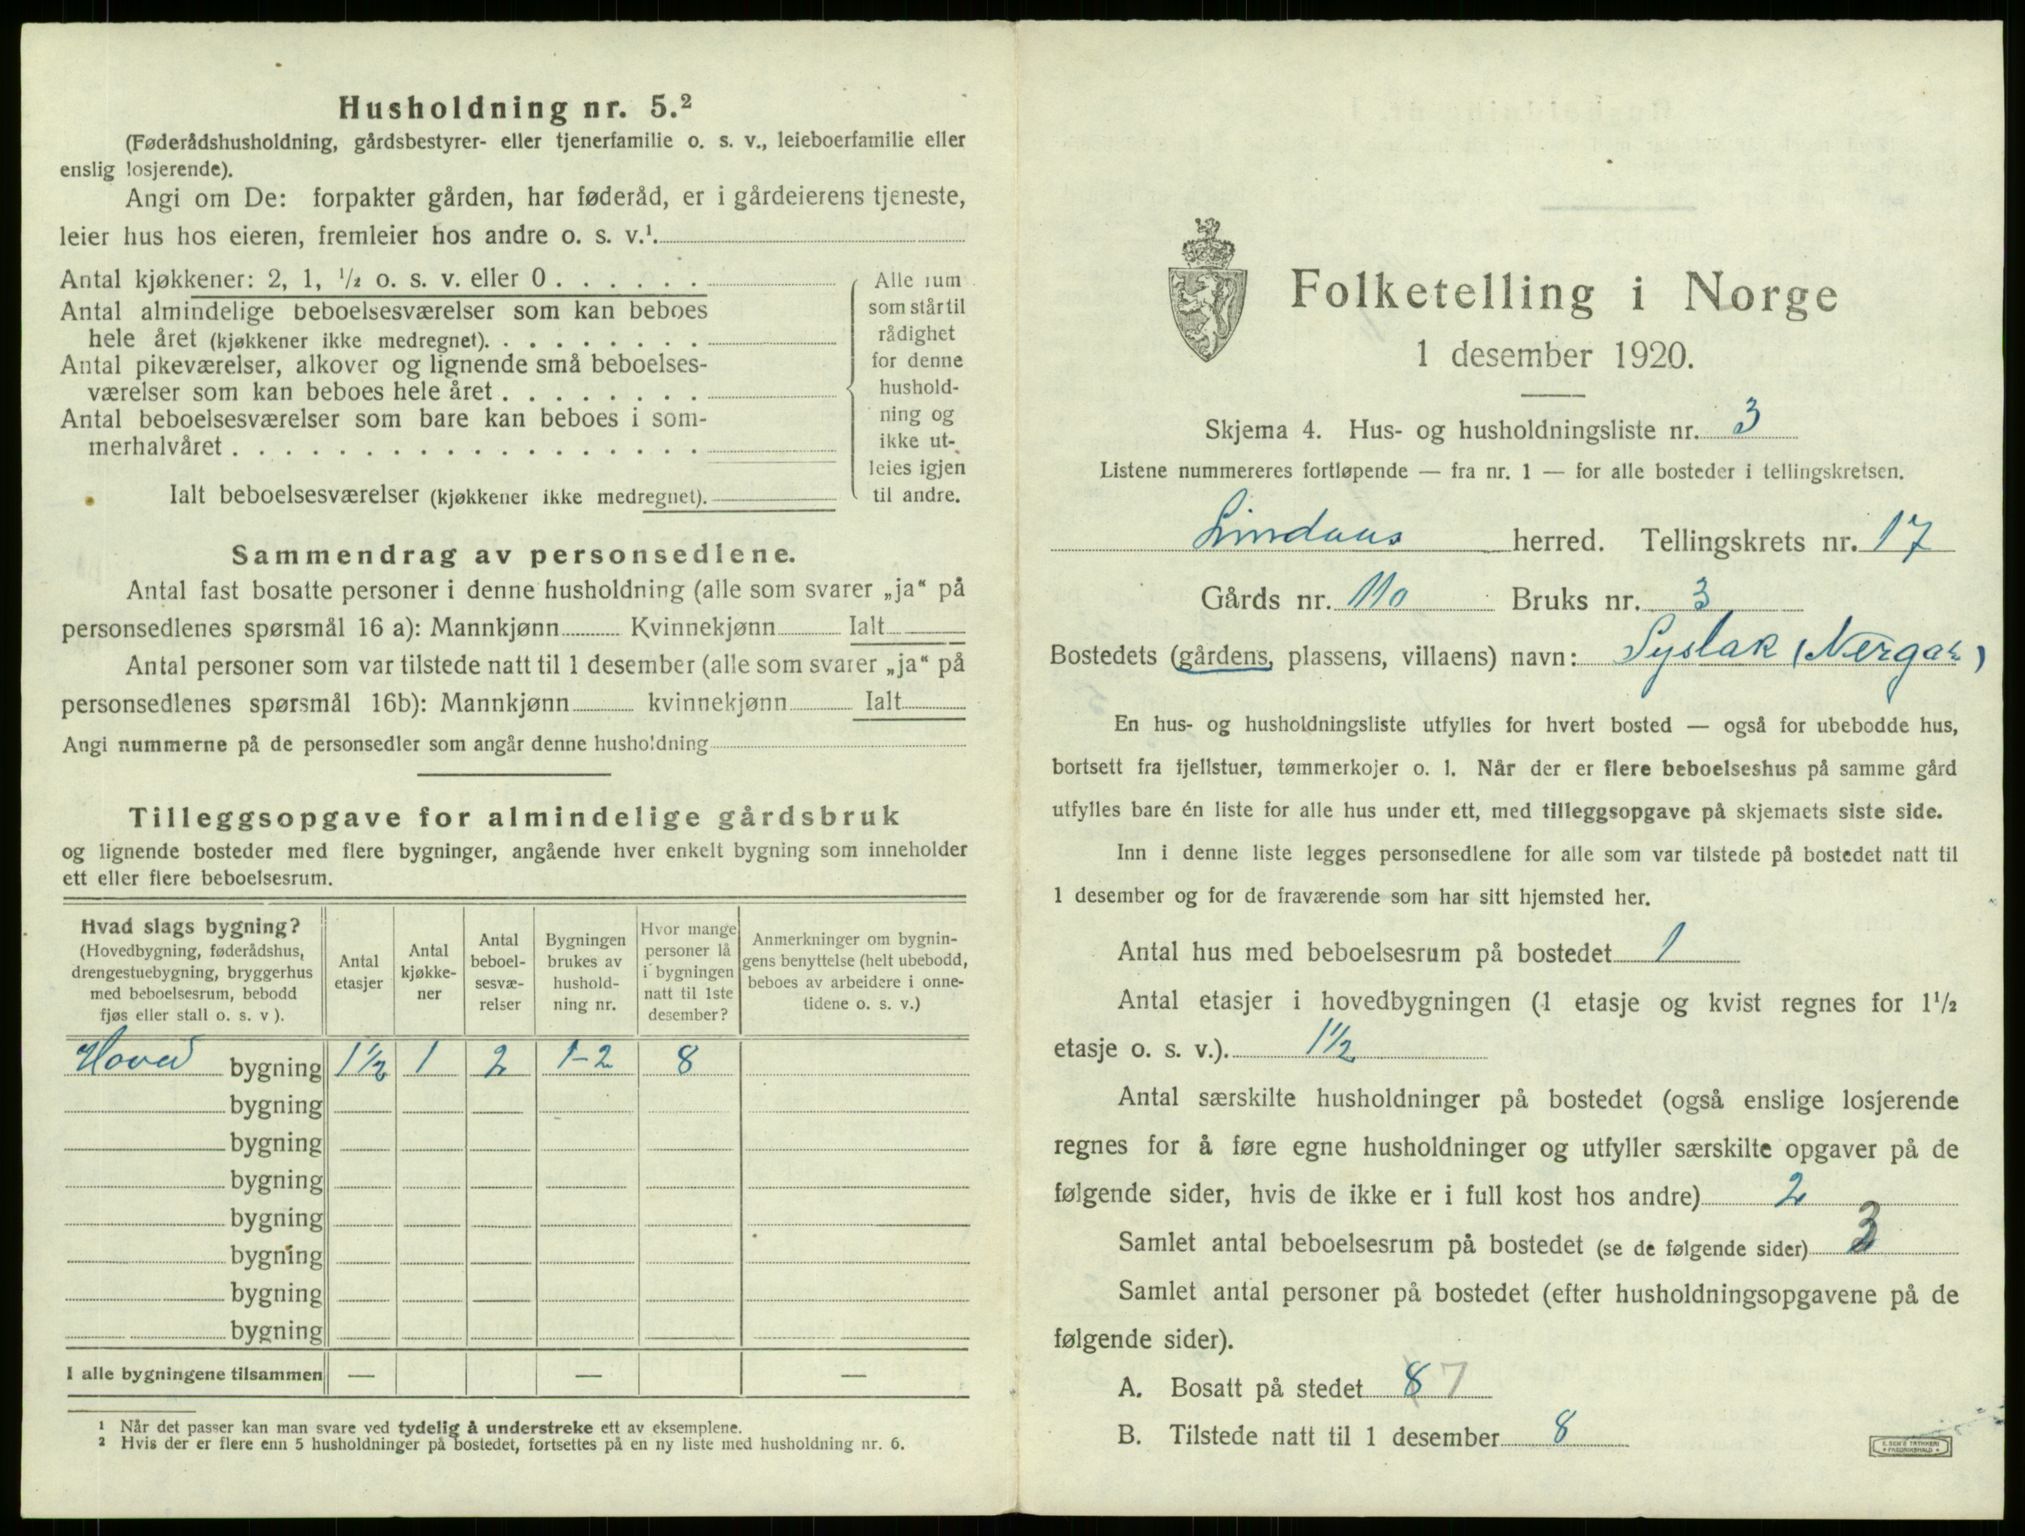 Husholdning nr. 5.²
(Føderådshusholdning, gårdsbestyrer- eller tjenerfamilie o. s. v., leieboerfamilie eller
enslig losjerende).
Angi om De: forpakter gården, har føderåd, er i gårdeierens tjeneste,
leier hus hos eieren, fremleier hos andre o. s. v.¹.
Antal kjøkkener: 2, 1, ½ o. s. v. eller 0 . . . . . .
Antal almindelige beboelsesværelser som kan beboes
hele året (kjøkkener ikke medregnet). . . . . . . . .
Antal pikeværelser, alkover og lignende små beboelses-
værelser som kan beboes hele året . . . . . . . .
Antal beboelsesværelser som bare kan beboes i som-
merhalvåret . . . . . . . . . . . . . . . . . .
Ialt beboelsesværelser (kjøkkener ikke medregnet).
Alle rum
som står til
rådighet
for denne
hushold-
ning og
ikke ut-
leies igjen
til andre.
Sammendrag av personsedlene.
Antal fast bosatte personer i denne husholdning (alle som svarer „ja“ på
personsedlenes spørsmål 16 a): Mannkjønn Kvinnekjønn Ialt
Antal personer som var tilstede natt til 1 desember (alle som svarer „ja“ på
personsedlenes spørsmål 16b): Mannkjønn kvinnekjønn Ialt
Angi nummerne på de personsedler som angår denne husholdning
Tilleggsopgave for almindelige gårdsbruk
og lignende bosteder med flere bygninger, angående hver enkelt bygning som inneholder
ett eller flere beboelsesrum.
Hvad slags bygning?
(Hovedbygning, føderådshus,
drengestuebygning, bryggerhus
med beboelsesrum, bebodd
fjøs eller stall o. s. v ).
Antal
etasjer
Antal
kjøkke-
ner
Antal
beboel-
sesvæ-
relser
Bygningen
brukes av
hushold-
ning nr.
Hvor mange
personer lå
i bygningen
natt til 1ste
desember?
Anmerkninger om bygnin-
gens benyttelse (helt ubebodd,
beboes av arbeidere i onne-
tidene o. s. v.)
Hoved bygning 1½ 1 2 1-2 8
bygning
bygning
bygning
bygning
bygning
bygning
bygning
I alle bygningene tilsammen — — —
¹ Når det passer kan man svare ved tydelig å understreke ett av eksemplene.
² Hvis der er flere enn 5 husholdninger på bostedet, fortsettes på en ny liste med husholdning nr. 6.
Folketelling i Norge
1 desember 1920.
Skjema 4. Hus- og husholdningsliste nr. 3
Listene nummereres fortløpende — fra nr. 1 — for alle bosteder i tellingskretsen.
Lindaas herred. Tellingskrets nr. 17
Gårds nr. 110 Bruks nr. 3
Bostedets (gårdens, plassens, villaens) navn: Syslak (Nergar)
En hus- og husholdningsliste utfylles for hvert bosted — også for ubebodde hus,
bortsett fra fjellstuer, tømmerkojer o. l. Når der er flere beboelseshus på samme gård
utfylles bare én liste for alle hus under ett, med tilleggsopgave på skjemaets siste side.
Inn i denne liste legges personsedlene for alle som var tilstede på bostedet natt til
1 desember og for de fraværende som har sitt hjemsted her.
Antal hus med beboelsesrum på bostedet 1
Antal etasjer i hovedbygningen (1 etasje og kvist regnes for 1½
etasje o. s. v.). 1½
Antal særskilte husholdninger på bostedet (også enslige losjerende
regnes for å føre egne husholdninger og utfyller særskilte opgaver på de
følgende sider, hvis de ikke er i full kost hos andre) 2
Samlet antal beboelsesrum på bostedet (se de følgende sider) 3
Samlet antal personer på bostedet (efter husholdningsopgavene på de
følgende sider).
A. Bosatt på stedet 8 7
B. Tilstede natt til 1 desember 8